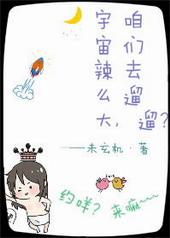 宇宙辣么大,
咱们去遛遛?
——未玄机·著
约咩?
来嘛~~~